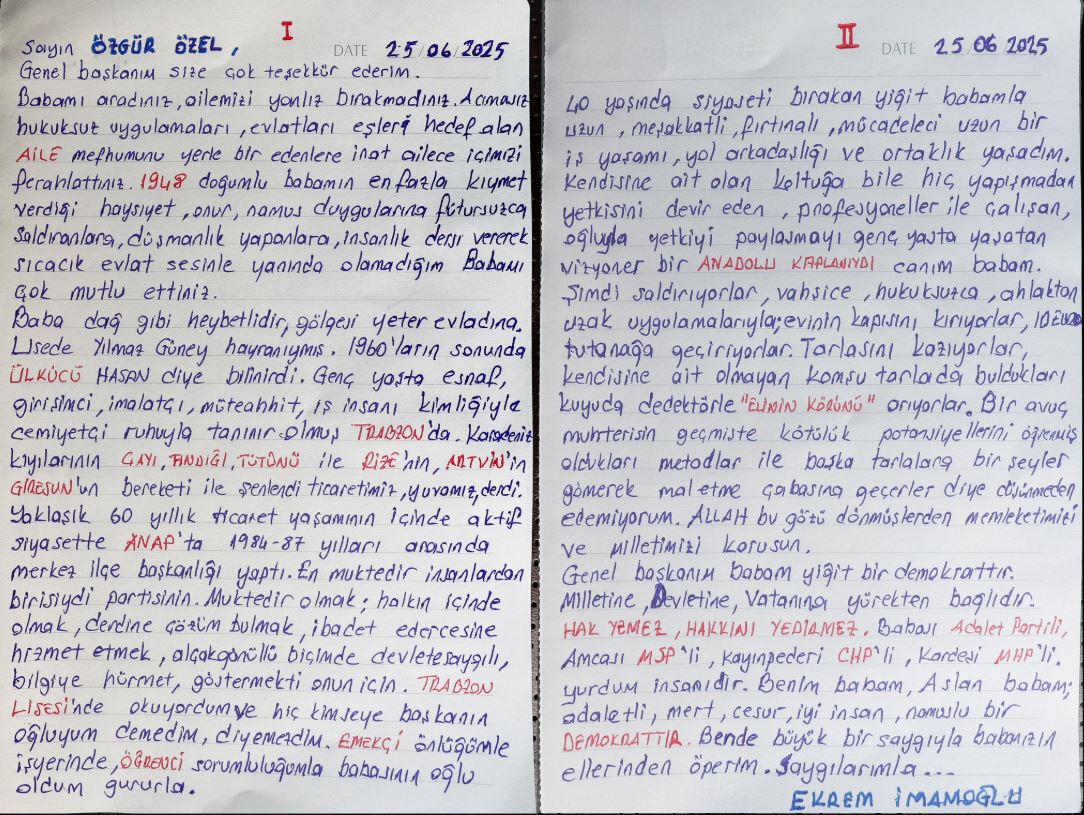 I
Sayın ÖZGÜR ÖZEL,
DATE 25/06/2025
Genel başkanım size çok teşekkür ederim.
Babamı aradınız, ailemizi yanlız bırakmadınız. Acımasız
hukuksuz uygulamaları, evlatları eşleri hedef alan
AİLE mefhumunu yerle bir edenlere inat ailece içimizi
ferahlattınız. 1948 doğumlu babamın en fazla kıymet
verdiği haysiyet, onur, namus duygularına fütursuzca
saldıranlara, düşmanlık yapanlara, insanlık dersi vererek
sıcacık evlat sesinle yanında olamadığım Babamı
çok mutlu ettiniz.
Baba dağ gibi heybetlidir, gölgesi yeter evladına.
Lisede Yılmaz Güney hayranıymış. 1960'ların sonunda
ÜLKÜCÜ HASAN diye bilinirdi. Genç yaşta esnaf,
girişimci, imalatçı, müteahhit, iş insanı kimliğiyle
cemiyetçi ruhuyla tanınır olmuş TRABZON'da. Karadeniz
kıyılarının ÇAYI, FINDIĞI, TÜTÜNÜ ile RİZE'nin, ARTVİN'in
GİRESUN'un bereketi ile şenlendi ticaretimiz, yuvamız, derdi.
Yaklaşık 60 yıllık ticaret yaşamının içinde aktif
siyasette ANAP'ta 1984-87 yılları arasında
merkez ilçe başkanlığı yaptı. En muktedir insanlardan
birisiydi partisinin. Muktedir olmak; halkın içinde
olmak, derdine çözüm bulmak, ibadet edercesine
hizmet etmek, alçakgönüllü biçimde devlete saygılı,
bilgiye hürmet, göstermekti onun için. TRABZON
LİSESİ'nde okuyordum ve hiç kimseye başkanın
oğluyum demedim, diyemezdim. EMEKÇİ önlüğümle
işyerinde, ÖĞRENCİ sorumluluğumla babasının oğlu
oldum gururla.
II
DATE 25/06/2025
40 yaşında siyaseti bırakan yiğit babamla
uzun, meşakkatli, fırtınalı, mücadeleci uzun bir
iş yaşamı, yol arkadaşlığı ve ortaklık yaşadım.
Kendisine ait olan koltuğa bile hiç yapışmadan
yetkisini devir eden, profesyoneller ile çalışan,
oğluyla yetkiyi paylaşmayı genç yaşta yaşatan
vizyoner bir ANADOLU KAPLANIYDI canım babam.
Şimdi saldırıyorlar, vahşice, hukuksuzca, ahlaktan
uzak uygulamalarıyla; evinin kapısını kırıyorlar, 10 Euro
tutanağa geçiriyorlar. Tarlasını kazıyorlar,
kendisine ait olmayan komşu tarlada buldukları
kuyuda dedektörle "ELİNİN KÖRÜNÜ" arıyorlar. Bir avuç
muhterisin geçmişte kötülük potansiyellerini öğrenmiş
oldukları metodlar ile başka tarlalara bir şeyler
gömerek mal etme çabasına geçerler diye düşünmeden
edemiyorum. ALLAH bu gözü dönmüşlerden memleketimizi
ve milletimizi korusun.
Genel başkanım babam yiğit bir demokrattır.
Milletine, Devletine, Vatanına yürekten bağlıdır.
HAK YEMEZ, HAKKINI YEDİRMEZ. Babası Adalet Partili,
Amcası MSP'li, kayınpederi CHP'li, Kardeşi MHP'li.
yurdum insanıdır. Benim babam, Aslan babam;
adaletli, mert, cesur, iyi insan, namuslu bir
DEMOKRATTIR. Bende büyük bir saygıyla babamızın
ellerinden öperim. Saygılarımla...
EKREM İMAMOĞLU